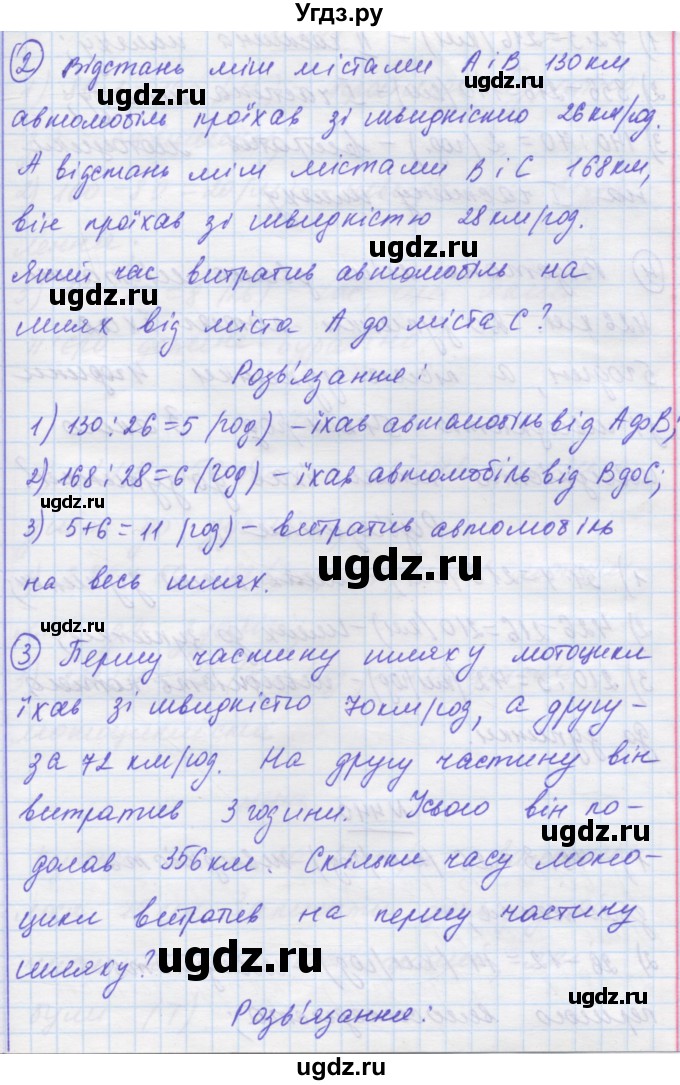 Угдз.ру
2 Відстань між містами А і В 130 км
автомобіль проїхав зі швидністю 26 км/год.
А відстань між містами В і С 168 км,
він проїхав зі швидністю 28 км/год.
Який час витратив автомобіль на
шлях від міста А до міста С?
Розв'язання:
1) 130 : 26 = 5 (год) – їхав автомобіль від А до В;
2) 168 : 28 = 6 (год) – їхав автомобіль від В до С;
3) 5 + 6 = 11 (год) – витратив автомобіль
на весь шлях.
3 Першу частину шляху мотоцикл
їхав зі швидністю 70 км/год, а другу –
за 72 км/год. На другу частину він
витратив 3 години. Усього він по-
долав 356 км. Скільки часу мото-
цикл витратив на першу частину
шляху?
Розв'язання:
ugdz.ru
ugdz.ru
ugdz.ru
ugdz.ru
ugdz.ru
ugdz.ru
ugdz.ru
ugdz.ru
ugdz.ru
ugdz.ru
ugdz.ru
ugdz.ru
ugdz.ru
ugdz.ru